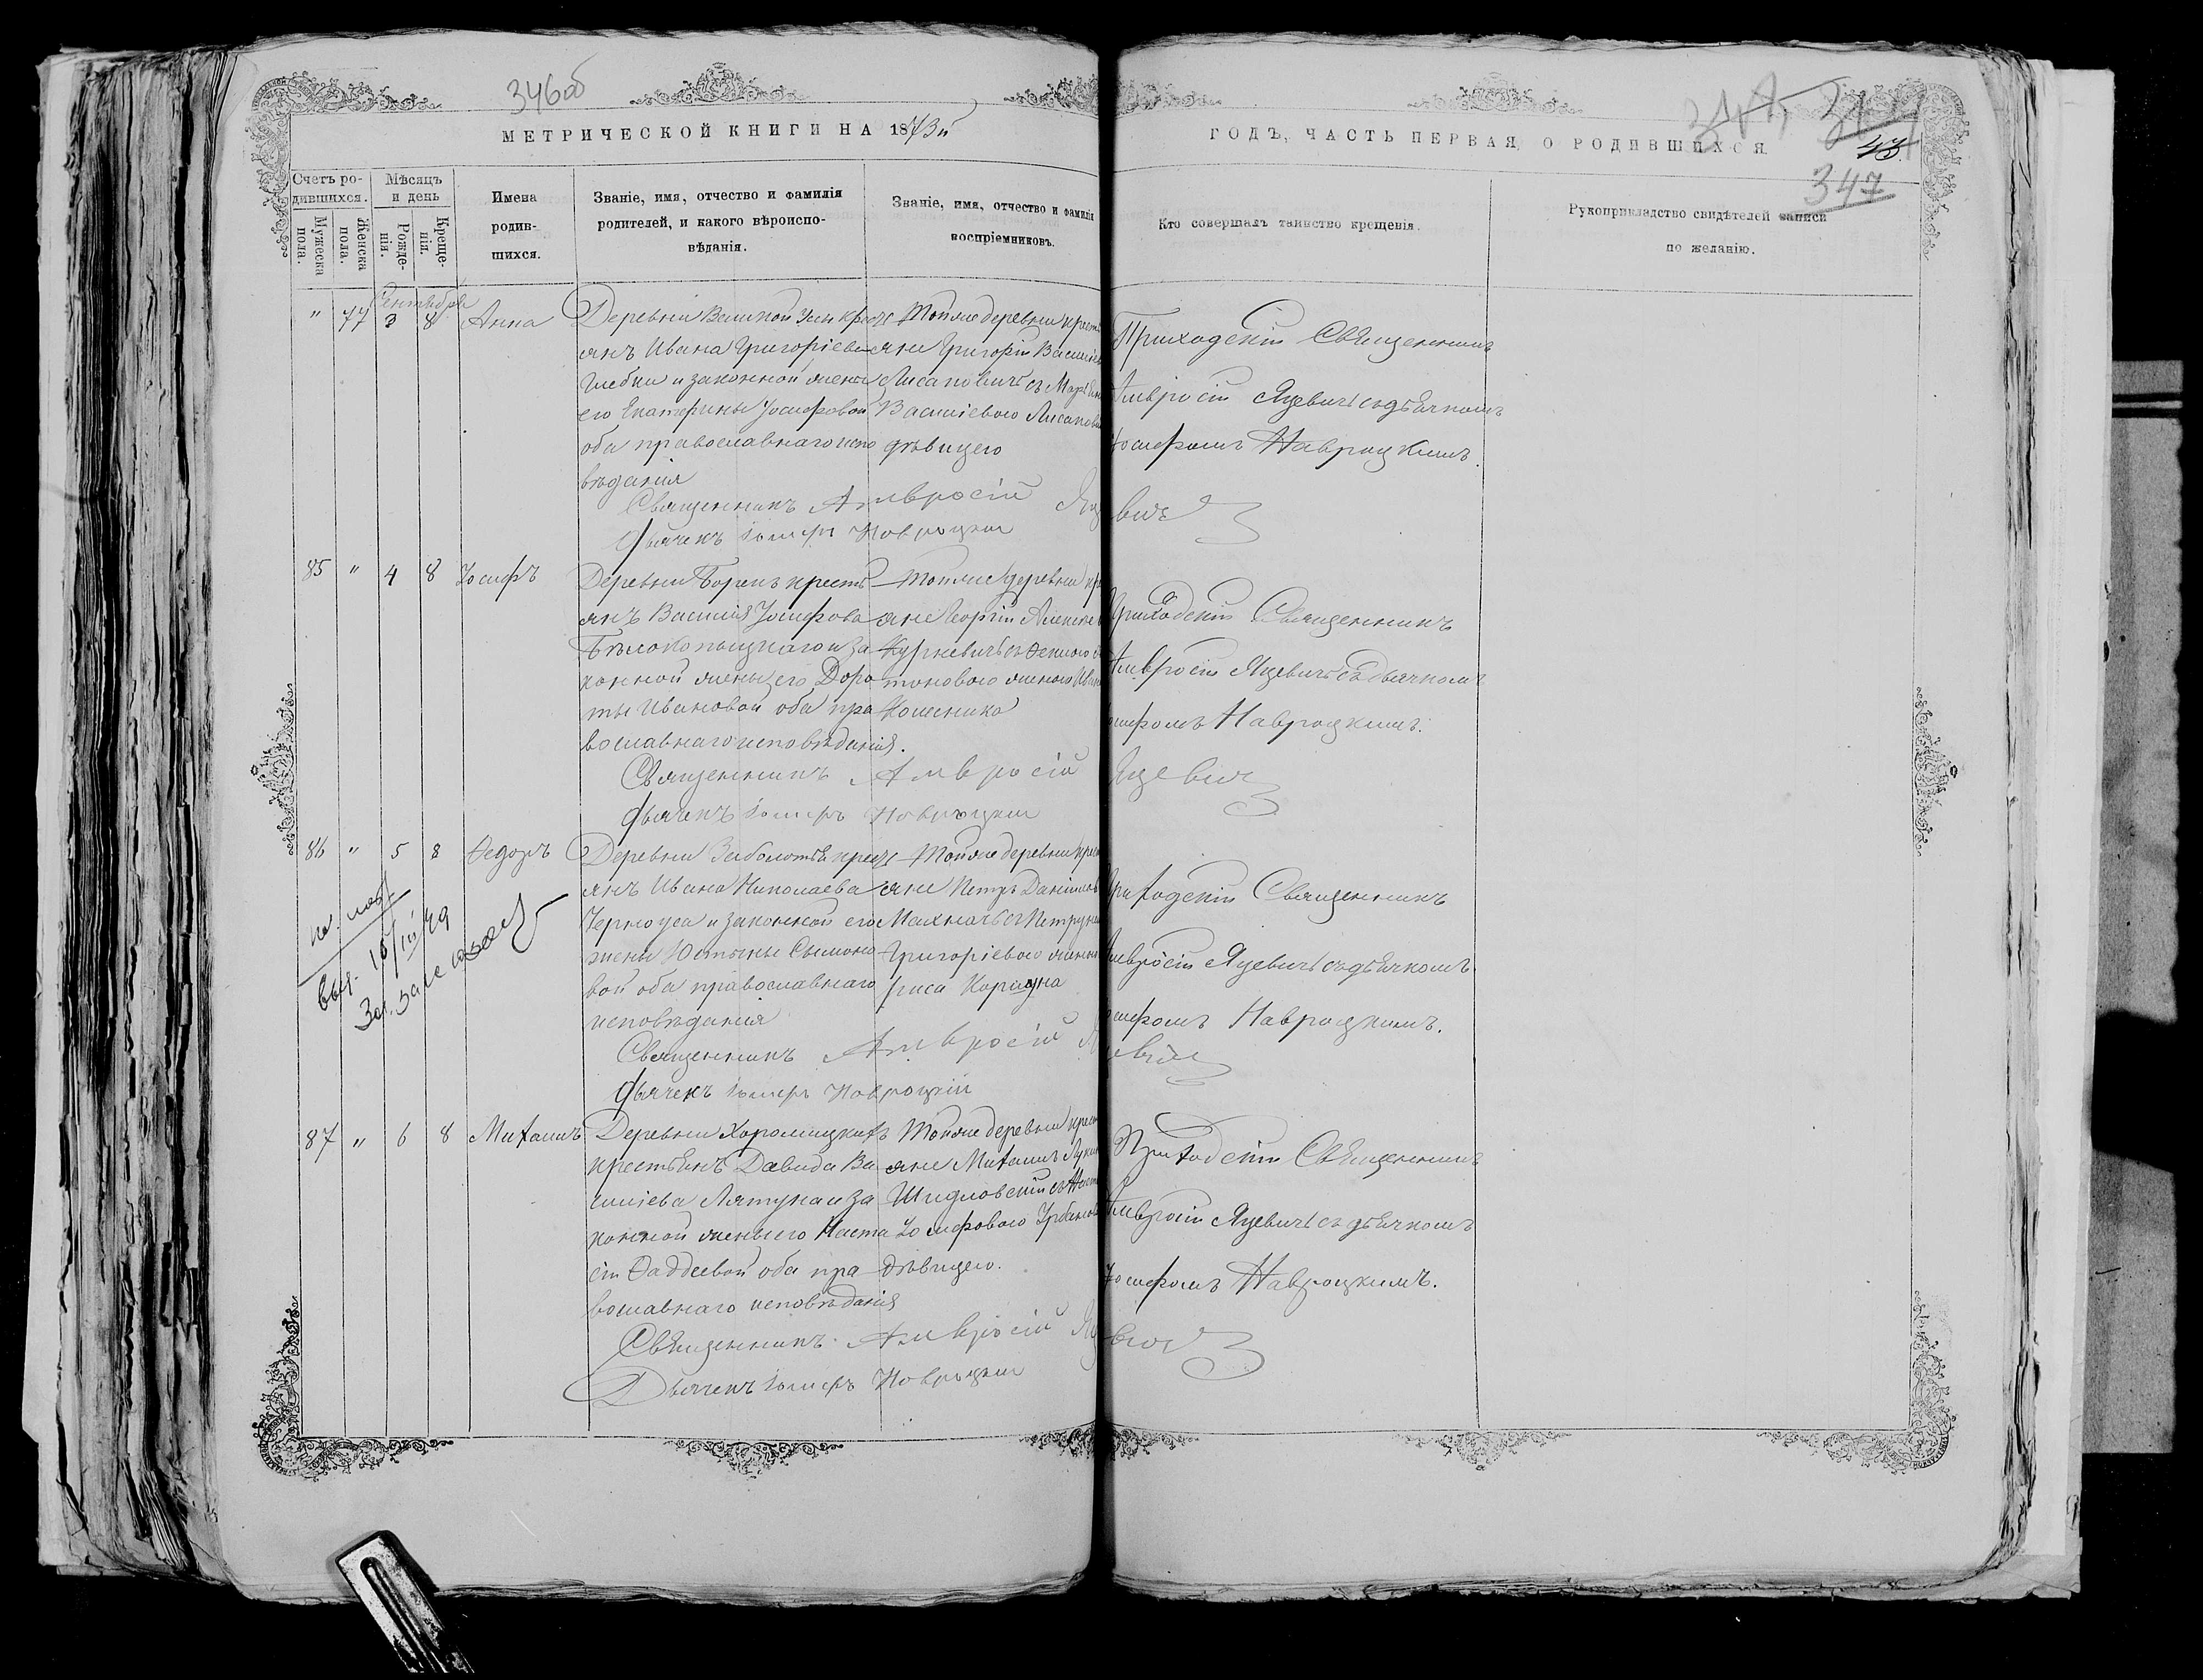 346об
МЕТРИЧЕСКОЙ КНИГИ НА 1873й
ГОДЪ, ЧАСТЬ ПЕРВАЯ, О РОДИВШИХСЯ.
43
347
Счетъ ро-
дившихся.
Мужеска
пола.
Женска
пола.
Мѣсяцъ
и день
Рожде-
нія.
Креще-
нія.
Имена
родив-
шихся.
Званіе, имя, отчество и фамилія
родителей, и какого вѣроиспо-
вѣданія.
Званіе, имя, отчество и фамилія
воспріемниковъ.
Кто совершалъ таинство крещенія.
Рукоприкладство свидѣтелей записи
по желанію.
Сентябрь
" 77 3 8 Анна
Деревни Великой Усы крест
янъ Ивана Григоріева
Глебки и законной жены
его Екатерины Іосифовой
оба православнаго испо
вѣданія
Тойже деревни крест
яне Григорій Василіев
Лисаповичъ съ Маріею
Василіевою
дѣвицею
Приходскій Священникъ
Амвросій Яцевичъ съ дьячкомъ
Іосифомъ Навроцкимъ.
Священникъ Амвросій Яцевичъ
Дьячекъ Іосифъ Навроцкій
85 " 4 8 Іосифъ
Деревни Борекъ крестъ
янъ Василія Іосифова
Бѣлокопыцкаго и за
конной жены его Доро
ты Ивановой оба пра
вославнаго исповѣданія.
Тойже деревни кре
яне Георгій
Куркевичъ съ Феклою
женою
Колесника
Приходскій Священникъ
Амвросій Яцевичъ съ дьячкомъ
Іосифомъ Навроцкимъ.
Священникъ Амвросій Яцевичъ
Дьячекъ Іосифъ Навроцкій
86 " 5 8 Федоръ
Деревни Заболотья крест
янъ Ивана Николаева
Черноуса и законной его
жены Юстыны Сымоно
вой оба православнаго
исповѣданія
Тойже деревни крест
яне Петръ Даніилов
Махначъ съ Петрунею
Григоріевою женою
Приходскій Священникъ
Амвросій Яцевичъ съ дьячкомъ
Іосифомъ Навроцкимъ.
Священникъ Амвросій Яцевичъ
Дьячекъ Іосифъ Навроцкій
87 " 6 8 Михаилъ
Деревни Хоромицкихъ
крестьянъ Давида Ва
силіева Лятуна и за
конной жены его Наста
сіи Фаддеевой оба пра
вославнаго исповѣданія
Тойже деревни крест
яне Михаилъ
Шидловскій съ
Іосифовою Урбанов
дѣвицею.
Приходскій Священникъ
Амвросій Яцевичъ съ дьячкомъ
Іосифомъ Навроцкимъ.
Священникъ Амвросій Яцевичъ
Дьячекъ Іосифъ Навроцкій